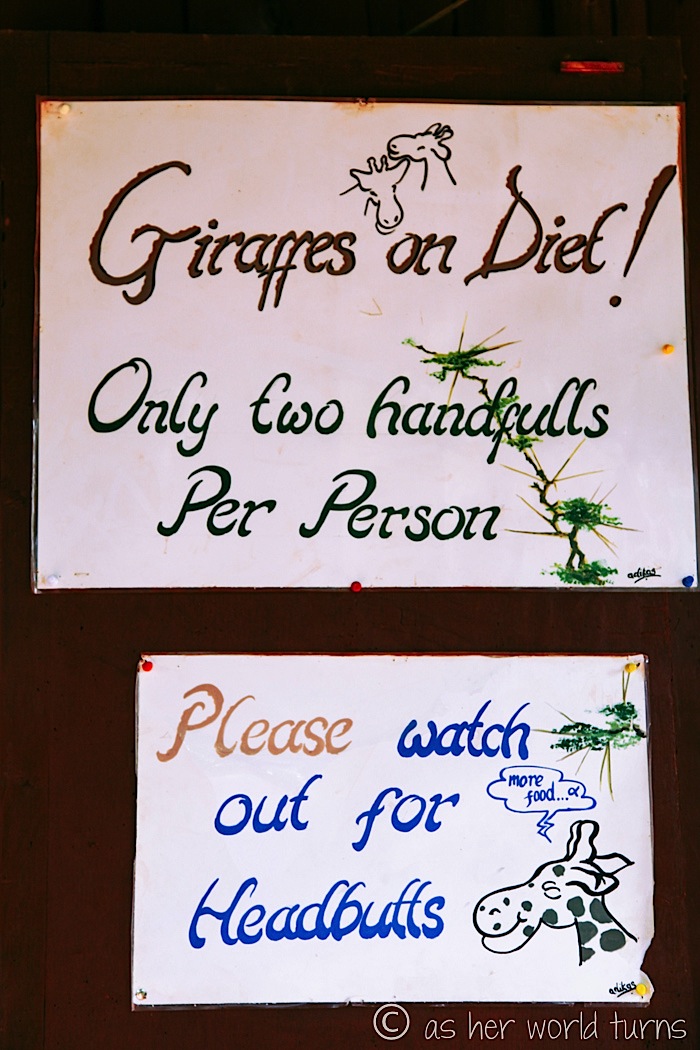 Giraffes on Diet!
Only two handfulls
Per Person
Please watch
more
food...
out for
Headbutts
© as her world turns